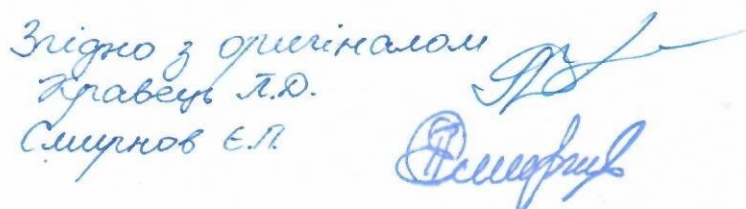 Згідно з оригіналом
Кравець Л.Д.
Смирнов Є.П.